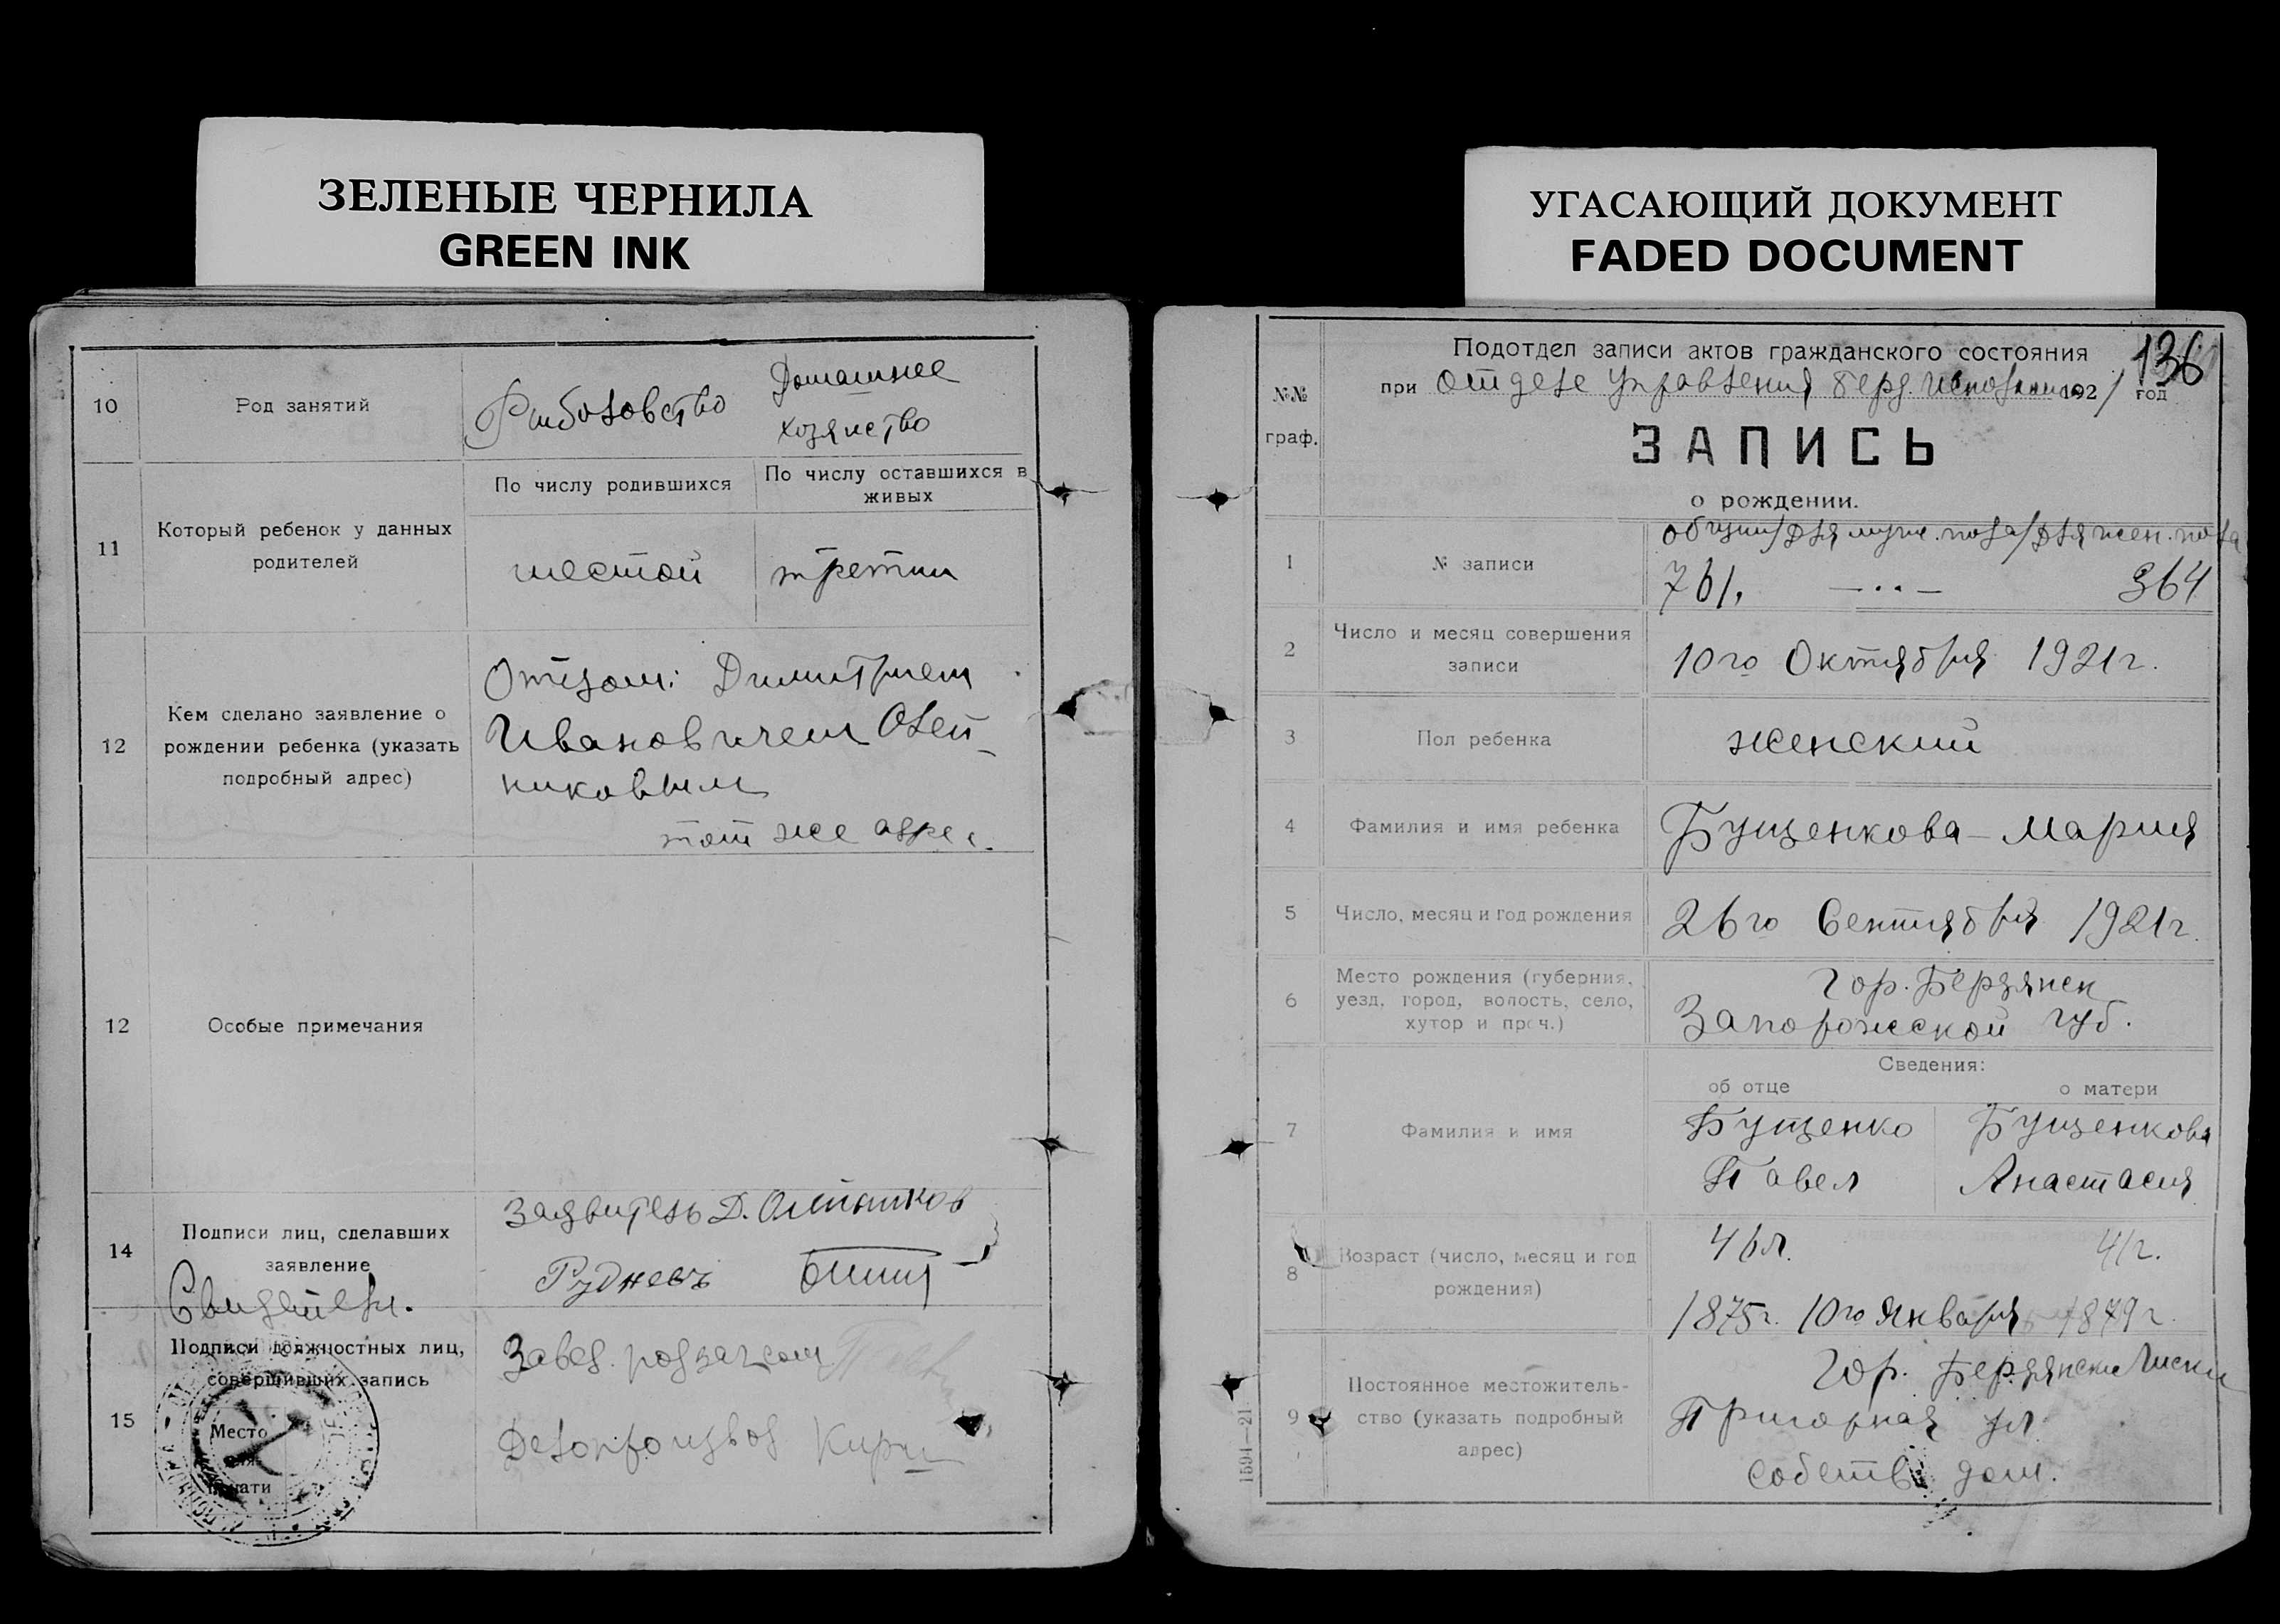 ЗЕЛЕНЫЕ ЧЕРНИЛА
GREEN INK
10
Род занятий
Рыболовство
Домашнее
хозяйство
11
Который ребенок у данных
родителей
По числу родившихся
По числу оставшихся в
живых
шестой
третий
12
Кем сделано заявление о
рождении ребенка (указать
подробный адрес)
Отцом: Димитрием
Ивановичем Олей-
никовым
тот же адрес.
12
Особые примечания
14
Подписи лиц, сделавших
заявление
Свидетели.
Заявитель Д. Олейников
Рудневъ
15
Подписи должностных лиц,
совершивших запись
Место
для
печати
Завед. подзагсом
Делопроизвод
УГАСАЮЩИЙ ДОКУМЕНТ
FADED DOCUMENT
136
№№
граф.
Подотдел записи актов гражданского состояния
при Отделе Управления Берд. Исполкома 1921 год
ЗАПИСЬ
о рождении.
1
№ записи
общий/для мужс. пола/для жен. пола
761. —··— 364
2
Число и месяц совершения
записи
10го Октября 1921г.
3
Пол ребенка
женский
4
Фамилия и имя ребенка
Бущенкова - Мария
5
Число, месяц и год рождения
26го Сентября 1921г.
6
Место рождения (губерния,
уезд, город, волость, село,
хутор и проч.)
Гор. Бердянск
Запорожской губ.
7
Фамилия и имя
Сведения:
об отце
о матери
Бущенко
Павел
Бущенкова
Анастасия
8
Возраст (число, месяц и год
рождения)
46л.
41г.
1875г. 10го Января
1879г
9
Постоянное местожитель-
ство (указать подробный
адрес)
Гор. Бердянск Лиски
Пригорная ул.
собств. дом.
1594—21